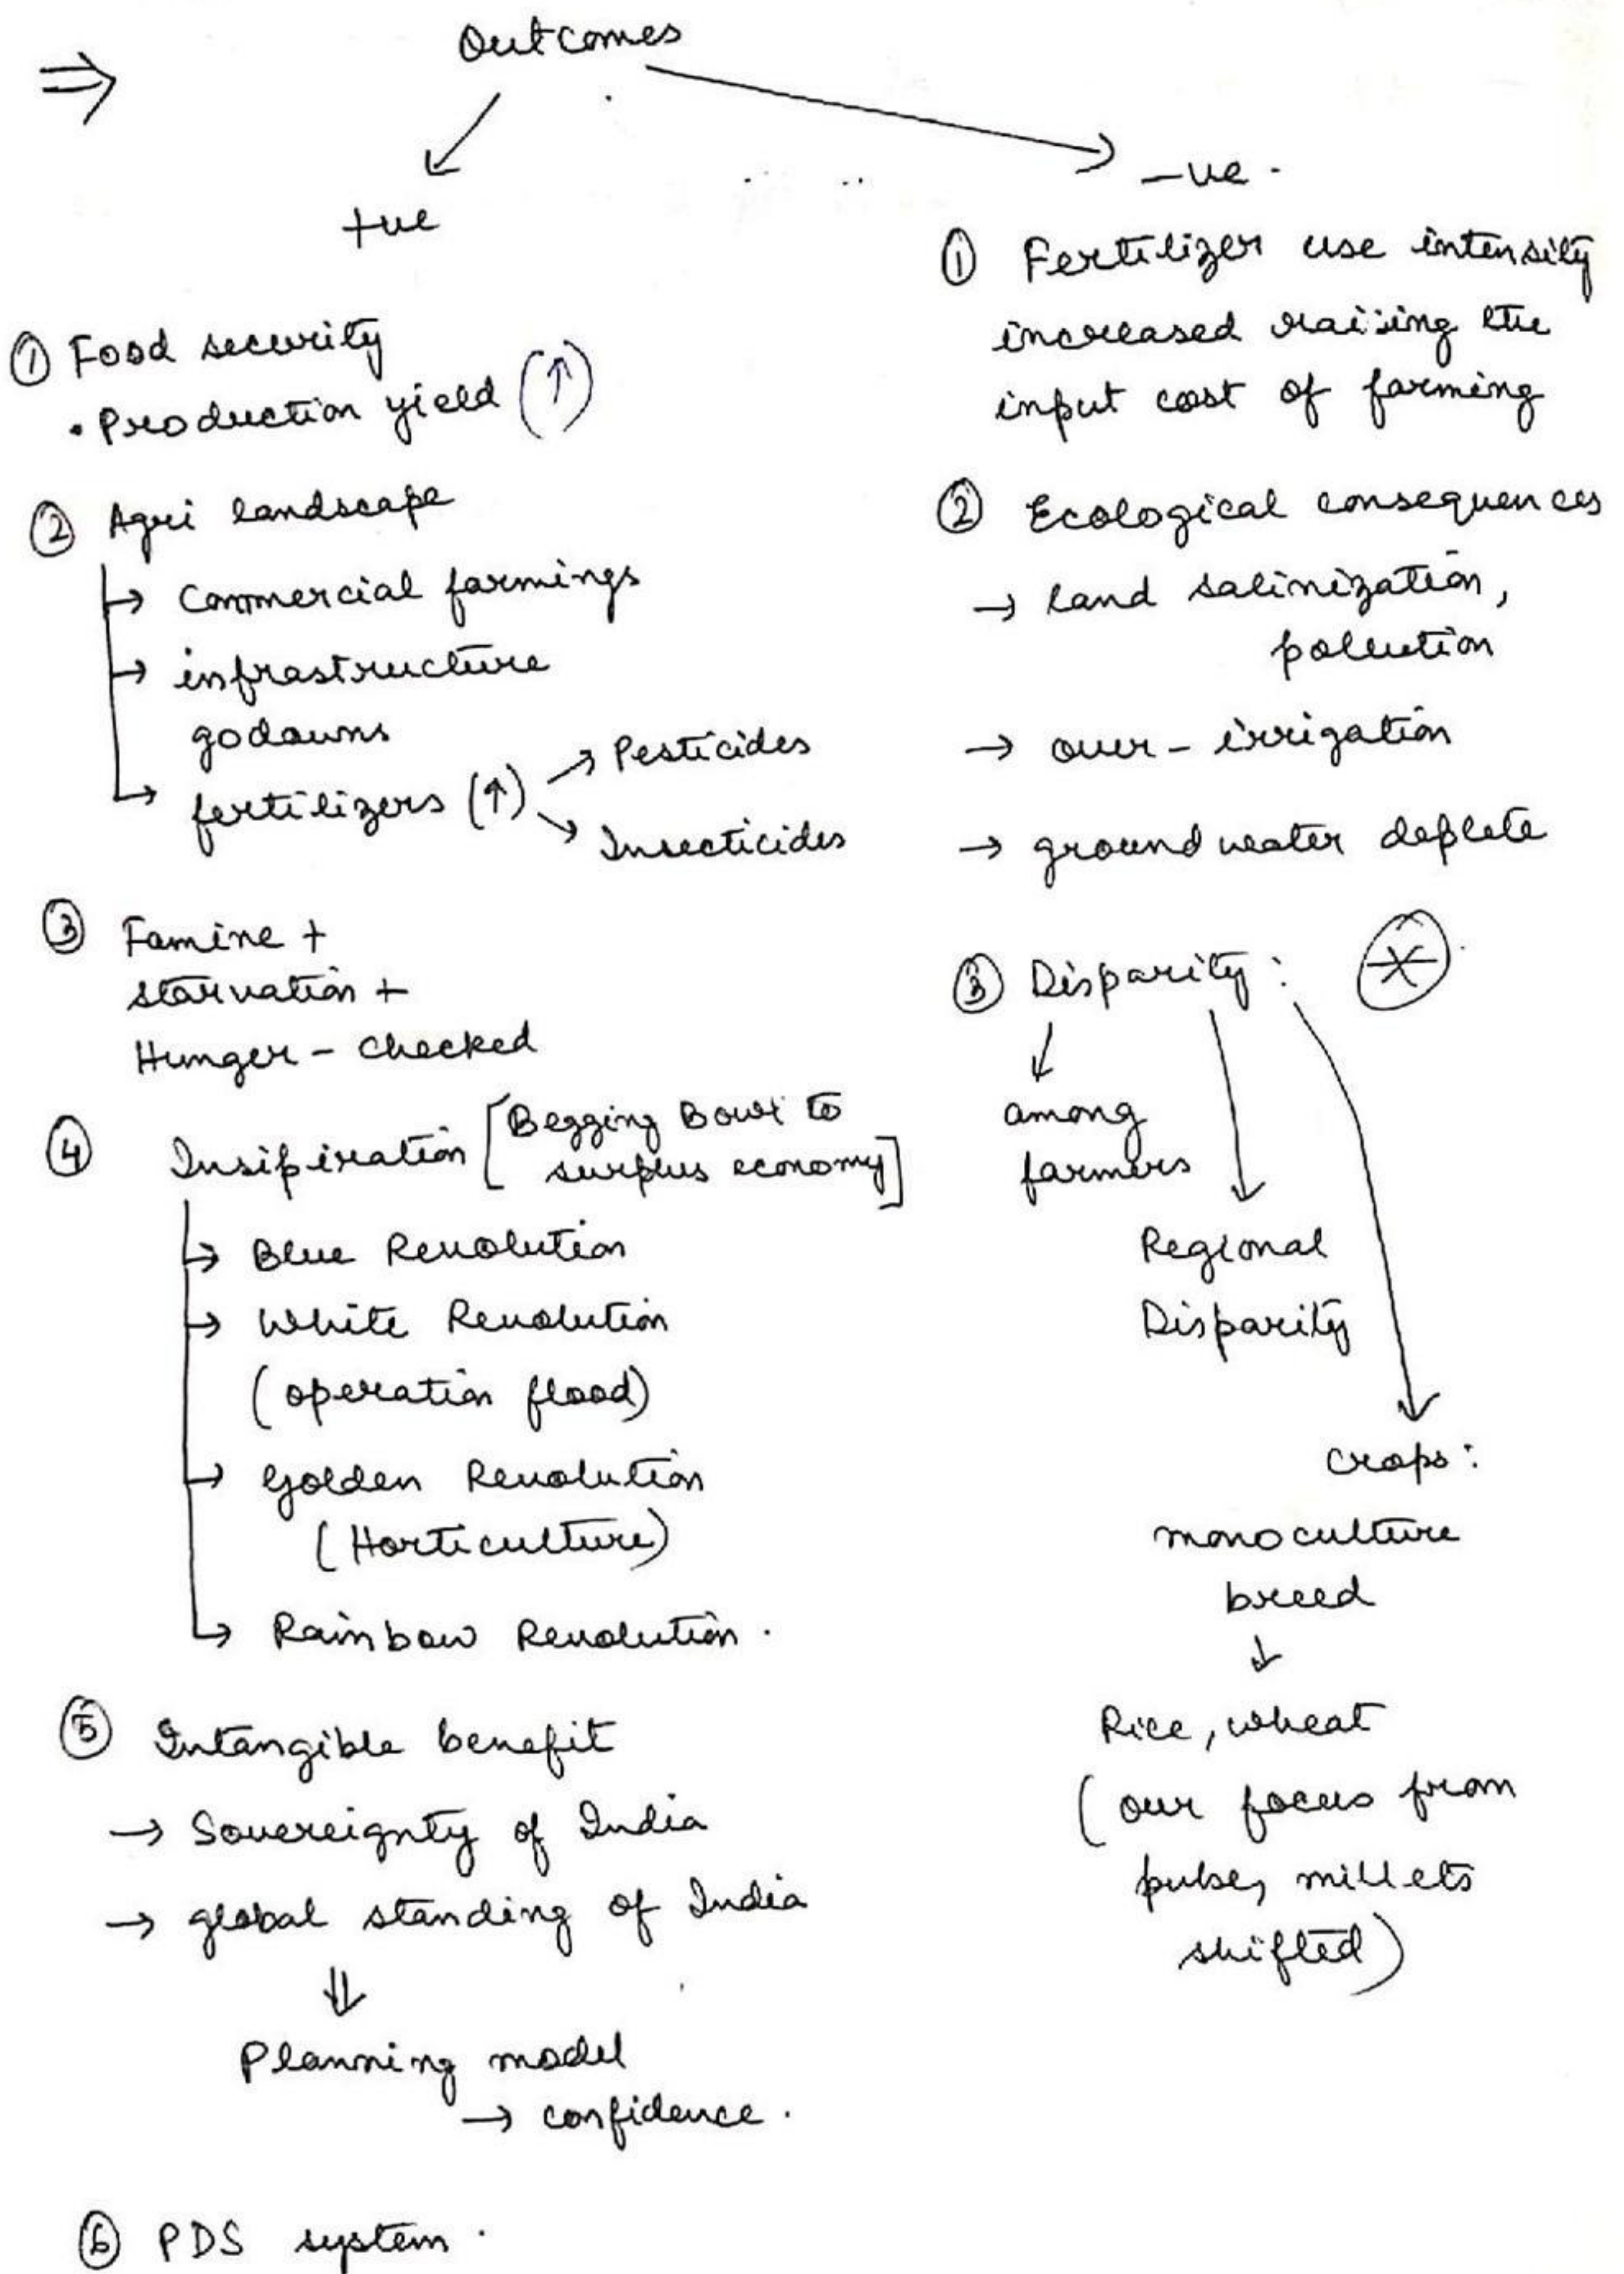 ⇒ Outcomes
+ve
① Food security
• Production yield (↑)
② Agri landscape
→ Commercial farmings
→ infrastructure
godowns
→ fertilizers (↑) → Pesticides
→ Insecticides
③ Famine +
starvation +
Hunger - checked
④ Insipiration [Begging Bowl to
surplus economy]
→ Blue Revolution
→ White Revolution
(operation flood)
→ Golden Revolution
(Horticulture)
→ Rainbow Revolution.
⑤ Intangible benefit
→ Sovereignty of India
→ global standing of India
⇓
Planning model
→ confidence.
⑥ PDS system.
-ve.
① Fertilizer use intensity
increased raising the
input cost of farming
② Ecological consequences
→ land salinization,
pollution
→ over-irrigation
→ ground water deplete
③ Disparity:
among
farmers
Regional
Disparity
crops:
monoculture
breed
↓
Rice, wheat
(our focus from
pulse, millets
shifted)